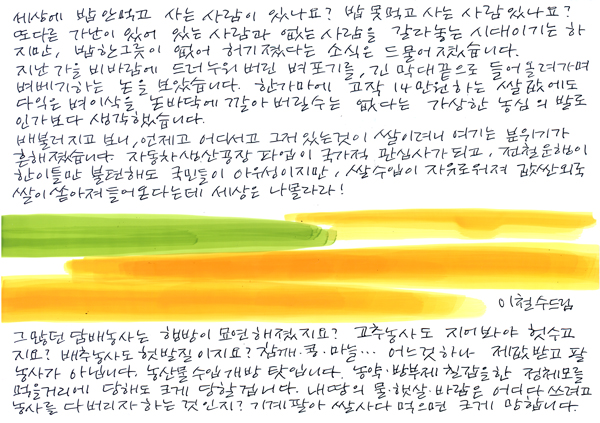 세상에 밥 안먹고 사는 사람이 있나요? 밥 못먹고 사는 사람 있나요?
또다른 가난이 있어 있는 사람과 없는 사람을 갈라놓는 시대이기는 하
지만, 밥 한그릇이 없어 허기졌다는 소식은 드물어졌습니다.
지난 가을 비바람에 드러누워 버린 벼포기를, 긴 막대끝으로 들어올려가며
벼베기하는 논을 보았습니다. 한가마에 고작 14만원하는 쌀값에도
다익은 벼이삭을 논바닥에 깔아 버릴수는 없다는 가상한 농심의 발로
인가보다 생각했습니다.
배불러지고 보니, 언제고 어디서고 그저 있는것이 쌀이려니 여기는 분위기가
흔해졌습니다. 자동차생산공장 파업이 국가적 관심사가 되고, 전철운행이
한이틀만 불편해도 국민들이 아우성이지만, 쌀수입이 자유로워져 값싼외국
쌀이 쏟아져 들어온다는데 세상은 나몰라라!
이철수드림
그 많던 담배농사는 협방이 묘연해졌지요? 고추농사도 지어봐야 헛수고
지요? 배추농사도 헛발질이지요? 참깨·콩·마늘… 어느것 하나 제값받고 팔
농사가 아닙니다. 농산물 수입개방 탓입니다. 농약·방부제 칠갑을한 정체모를
먹을거리에 당해도 크게 당할겁니다. 내땅의 물·햇살·바람은 어디다 쓰려고
농사를 다버리자하는 것인지? 기계팔아 쌀사다 먹으면 크게 망합니다.